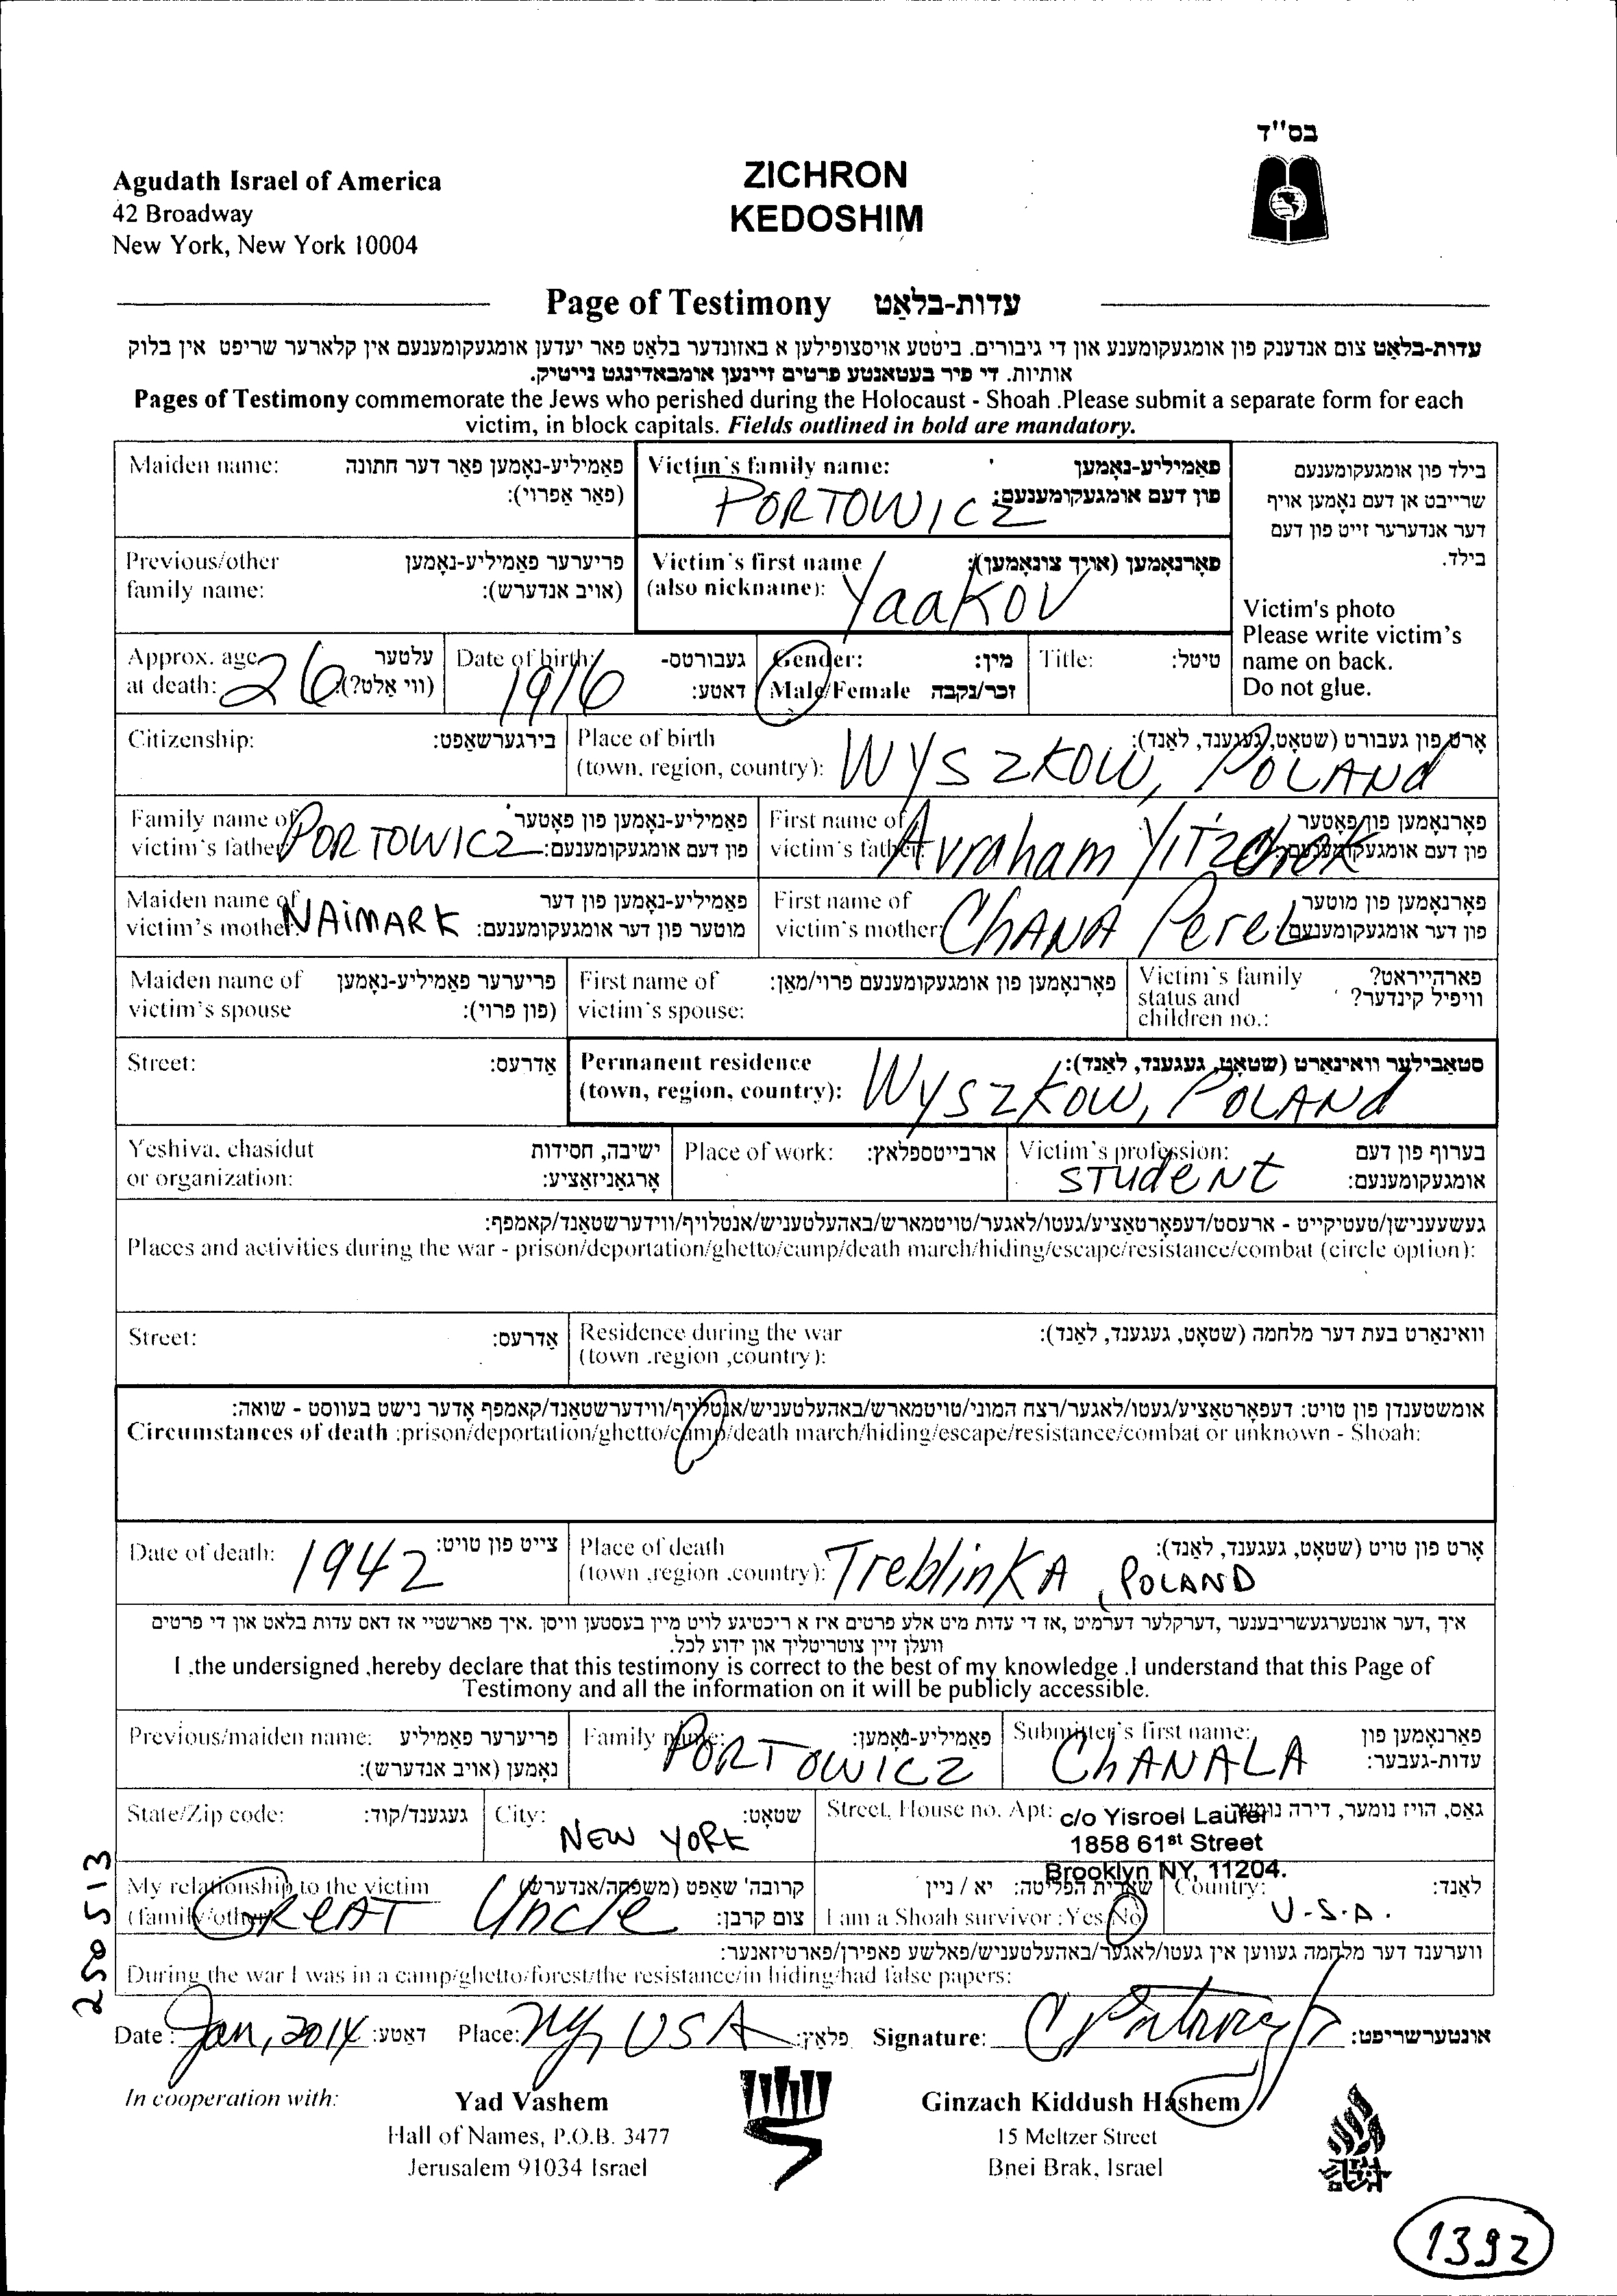 בס"ד
Agudath Israel of America
42 Broadway
New York, New York 10004
ZICHRON
KEDOSHIM
Page of Testimony עדות-בלאַט
עדות-בלאַט צום אנדענק פון אומגעקומענע און די גיבורים. ביטטע אויסצופילען א באזונדער בלאַט פאר יעדען אומגעקומענעם אין קלארער שריפט אין בלוק
אותיות. די פיר בעטאנטע פרטים זיינען אומבאדינגט נייטיק.
Pages of Testimony commemorate the Jews who perished during the Holocaust - Shoah .Please submit a separate form for each
victim, in block capitals. Fields outlined in bold are mandatory.
Maiden name: פאַמיליע-נאָמען פאר דער חתונה
(פאַר אַפרוי):
Victim's family name: פאַמיליע-נאָמען
פון דעם אומגעקומענעם:
PORTOWICZ
בילד פון אומגעקומענעם
שרייבט אן דעם נאָמען אויף
דער אנדערער זייט פון דעם
בילד.
Victim's photo
Please write victim's
name on back.
Do not glue.
Previous/other פריערער פאַמיליע-נאָמען
family name: (אויב אנדערש):
Victim's first name פאָרנאָמען (אויך צונאָמען):
(also nickname): Yaakov
Approx. age עלטער
at death: 26 (ווי אַלט?):
Date of birth: געבורטס-
1916 דאטע:
Gender: מין:
Male/Female זכר/נקבה
Title: טיטל:
Citizenship: בירגערשאַפט:
Place of birth אָרט פון געבורט (שטאָט, געגענד, לאַנד):
(town, region, country): WYSZKOW, POLANd
Family name of פאַמיליע-נאָמען פון פאָטער
victim's father: PORTOWICZ פון דעם אומגעקומענעם:
First name of פאָרנאָמען פון פאָטער
victim's father: Avraham YITZchok פון דעם אומגעקומענעם:
Maiden name of פאַמיליע-נאָמען פון דער
victim's mother: NAiMARK מוטער פון דער אומגעקומענעם:
First name of פאָרנאָמען פון מוטער
victim's mother: ChANA Perel פון דער אומגעקומענעם:
Maiden name of פריערער פאַמיליע-נאָמען
victim's spouse (פון פרוי):
First name of פאָרנאָמען פון אומגעקומענעם פרוי/מאַן:
victim's spouse:
Victim's family פארהייראט?
status and וויפיל קינדער?
children no.:
Street: אַדרעס:
Permanent residence סטאַבילער וואינאַרט (שטאָט, געגענד, לאַנד):
(town, region, country): WYSZKOW, POLANd
Yeshiva, chasidut ישיבה, חסידות
or organization: אָרגאַניזאַציע:
Place of work: ארבייטספלאַץ:
Victim's profession: בערוף פון דעם
STUdeNT אומגעקומענעם:
געשעענישן/טעטיקייט - ארעסט/דעפאָרטאַציע/געטו/לאגער/טויטמארש/באהעלטעניש/אנטלויף/ווידערשטאַנד/קאמפף:
Places and activities during the war - prison/deportation/ghetto/camp/death march/hiding/escape/resistance/combat (circle option):
Street: אַדרעס:
Residence during the war וואינארט בעת דער מלחמה (שטאָט, געגענד, לאַנד):
(town .region ,country):
אומשטענדן פון טויט: דעפאָרטאַציע/געטו/לאגער/רצח המוני/טויטמארש/באהעלטעניש/אנטלויף/ווידערשטאַנד/קאמפף אָדער נישט בעווסט - שואה:
Circumstances of death :prison/deportation/ghetto/camp/death march/hiding/escape/resistance/combat or unknown - Shoah:
Date of death: 1942 צייט פון טויט:
Place of death אָרט פון טויט (שטאָט, געגענד, לאַנד):
(town ,region .country): TreblinKA, POLAND
איך ,דער אונטערגעשריבענער ,דערקלער דערמיט ,אז די עדות מיט אלע פרטים איז א ריכטיגע לויט מיין בעסטען וויסן .איך פארשטיי אז דאס עדות בלאט און די פרטים
וועלן זיין צוטריטליך און ידוע לכל.
I ,the undersigned ,hereby declare that this testimony is correct to the best of my knowledge .I understand that this Page of
Testimony and all the information on it will be publicly accessible.
Previous/maiden name: פריערער פאַמיליע
נאָמען (אויב אנדערש):
Family name: פאַמיליע-נאָמען:
PORTOWICZ
Submitter's first name: פארנאָמען פון
ChANALA עדות-געבער:
State/Zip code: געגענד/קוד:
City: שטאָט:
NEW YORK
Street, House no. Apt: גאַס, הויז נומער, דירה נומער:
c/o Yisroel Laufer
1858 61st Street
Brooklyn NY, 11204.
My relationship to the victim קרובה' שאַפט (משפחה/אנדערש)
(family/other): GReAT Uncle צום קרבן:
שארית הפליטה: יא / ניין
I am a Shoah survivor :Yes/No
Country: לאַנד:
U.S.A.
ווערענד דער מלחמה געווען אין געטו/לאגער/באהעלטעניש/פאלשע פאפירן/פארטיזאנער:
During the war I was in a camp/ghetto/forest/the resistance/in hiding/had false papers:
250513
Date: Jan, 2014 דאטע: Place: NY, USA פלאַץ: Signature: אונטערשריפט:
In cooperation with:
Yad Vashem
Hall of Names, P.O.B. 3477
Jerusalem 91034 Israel
Ginzach Kiddush Hashem
15 Meltzer Street
Bnei Brak, Israel
1392